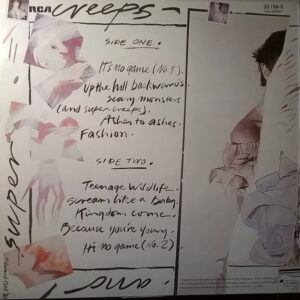 RCA
creeps
SIDE ONE.
It's no game (No. 1).
Up the hill backwards.
scary monsters
(and super creeps).
Ashes to ashes.
Fashion.
SIDE TWO.
Teenage wildlife.
scream like a baby.
Kingdom come.
Because you're young.
It's no game (No. 2)
super
and